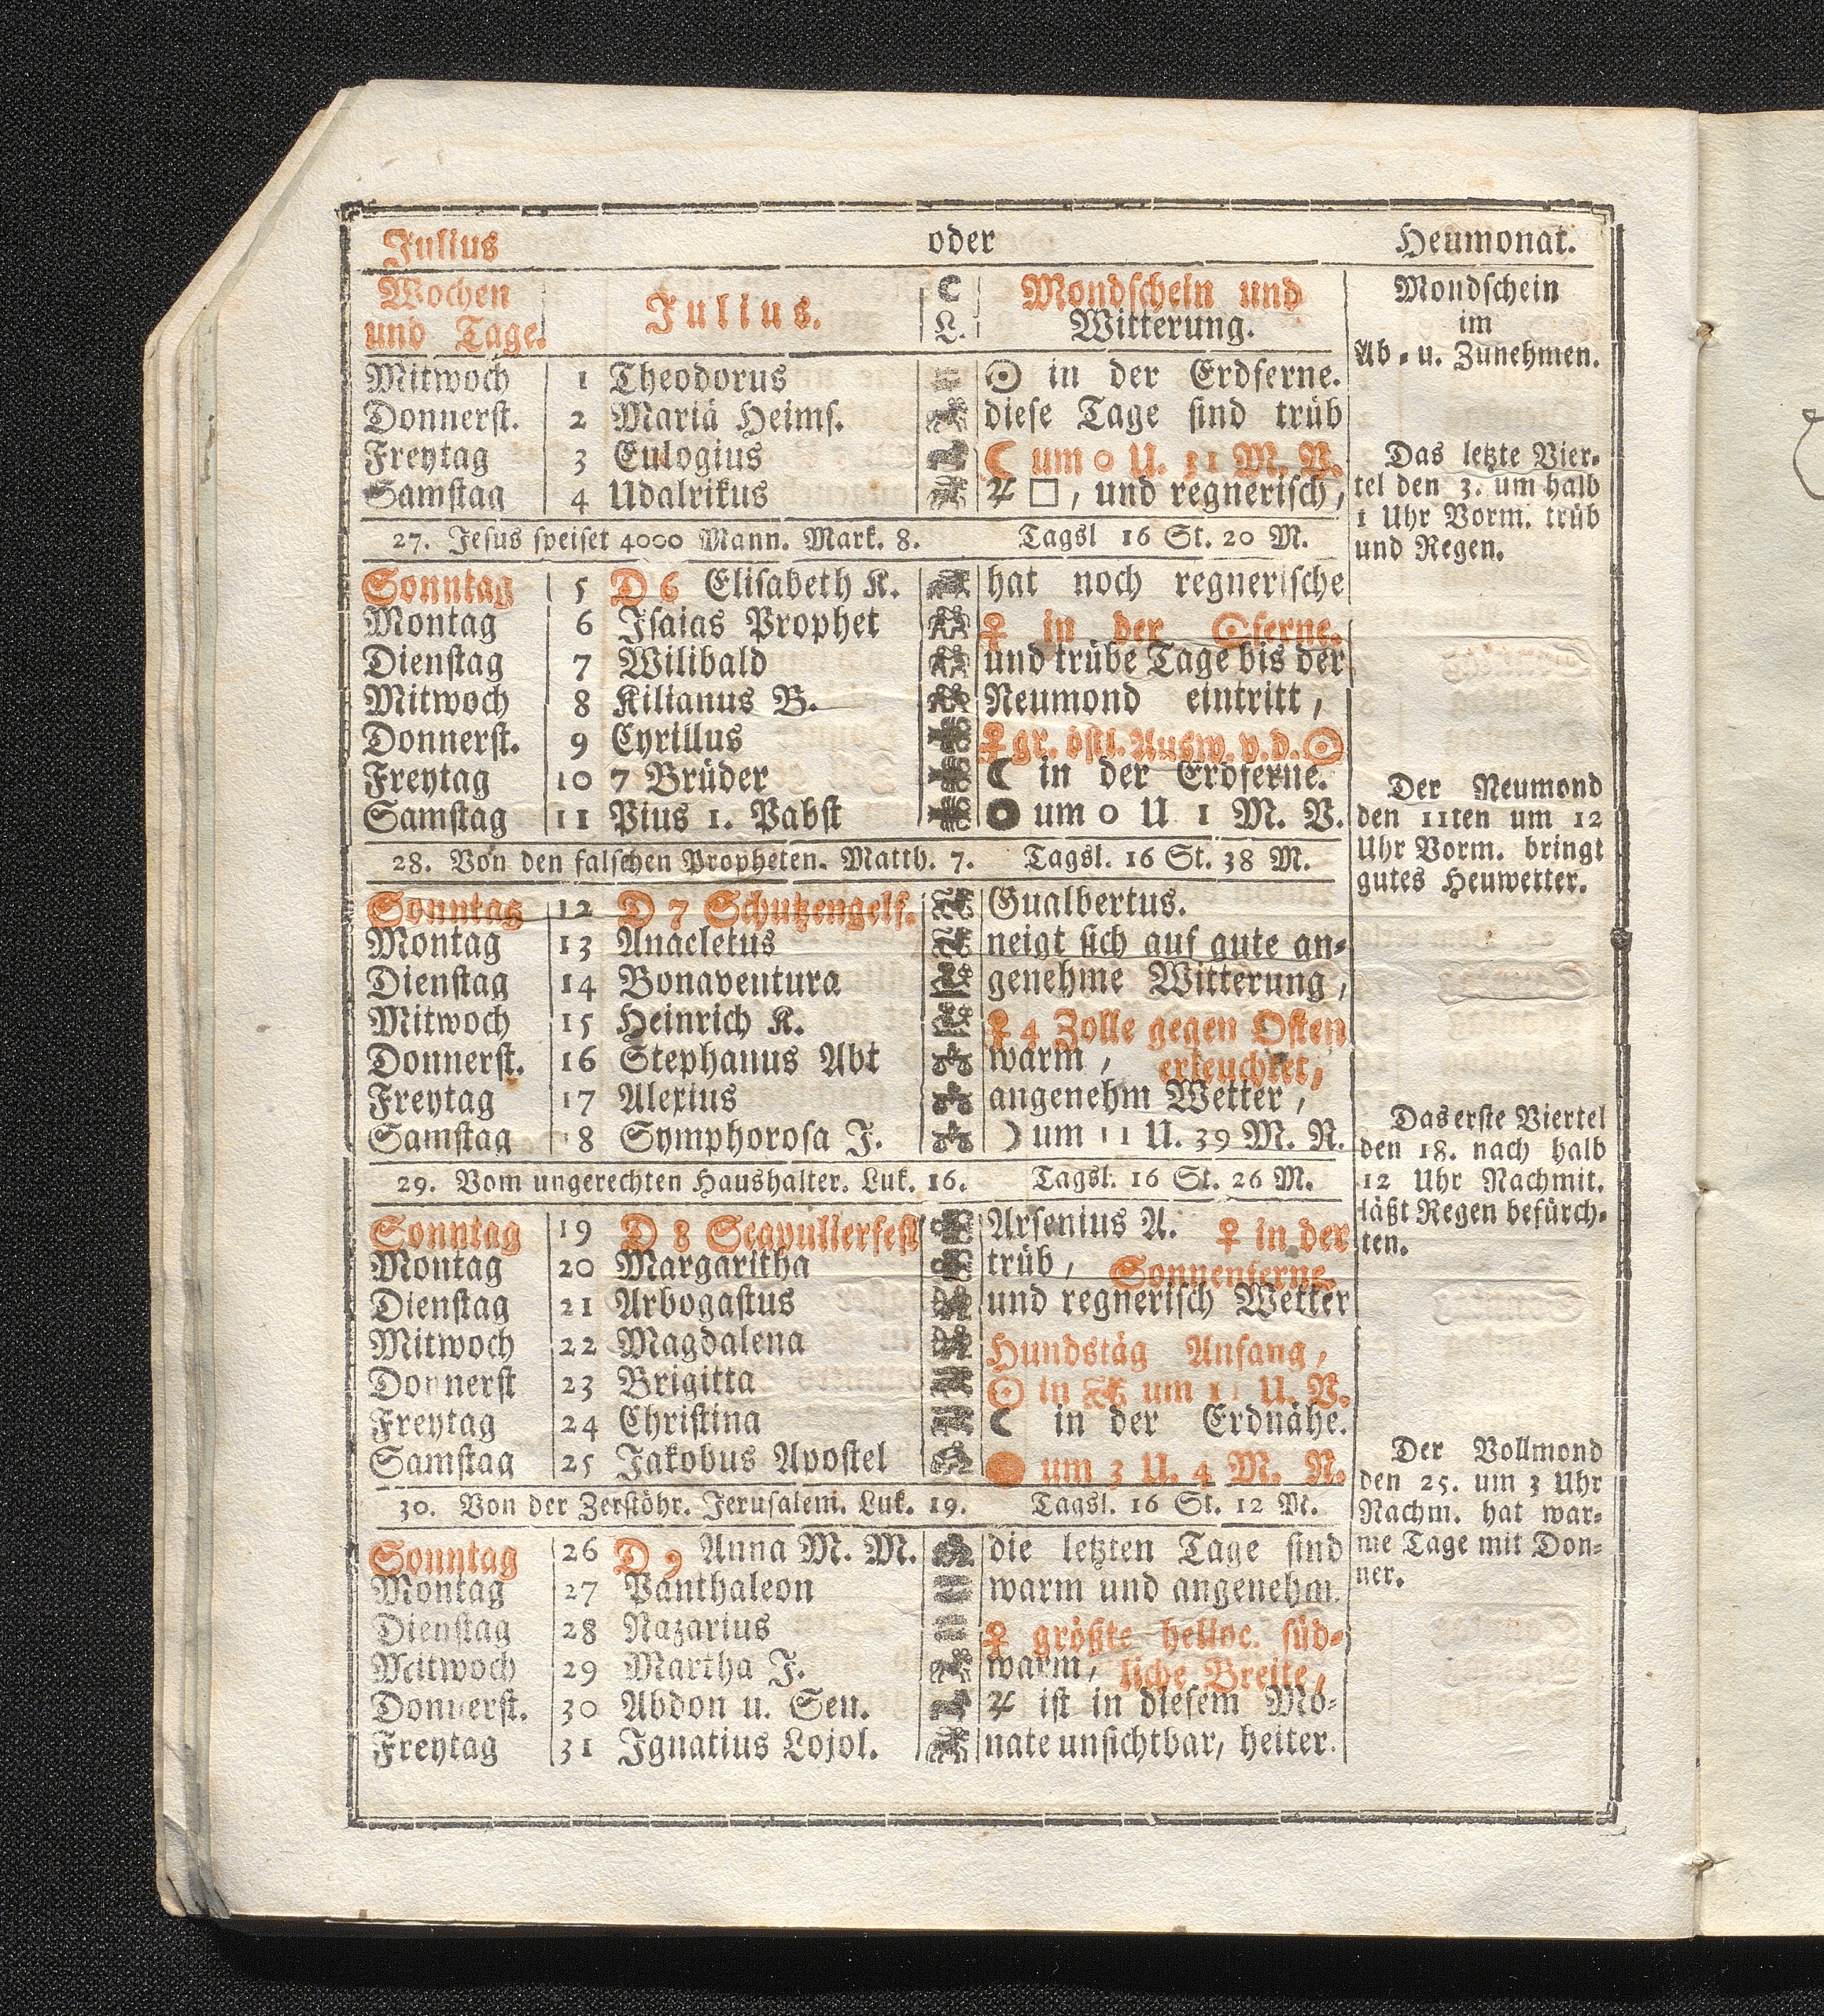 Julius oder Heumonat.
Wochen und Tage. Julius. ☾ L. Mondschein und Witterung.
Mitwoch 1 Theodorus ☉ in der Erdferne.
Donnerst. 2 Mariä Heims. diese Tage sind trüb
Freytag 3 Eulogius ☾ um 0 U. 31 M. V.
Samstag 4 Udalrikus ♃ □, und regnerisch,
27. Jesus speiset 4000 Mann. Mark. 8. Tagsl 16 St. 20 M.
Sonntag 5 D 6 Elisabeth K. hat noch regnerische
Montag 6 Isaias Prophet ♀ in der ☉ferne.
Dienstag 7 Wilibald und trübe Tage bis der
Mitwoch 8 Kilianus B. Neumond eintritt,
Donnerst. 9 Cyrillus ♀ gr. östl. Ausw. v. d. ☉
Freytag 10 7 Brüder ☾ in der Erdferne.
Samstag 11 Pius 1. Pabst ● um 0 U 1 M. V.
28. Von den falschen Propheten. Matth. 7. Tagsl. 16 St. 38 M.
Sonntag 12 D 7 Schutzengelf. Gualbertus.
Montag 13 Anacletus neigt sich auf gute an-
Dienstag 14 Bonaventura genehme Witterung,
Mitwoch 15 Heinrich K. ♀ 4 Zolle gegen Osten
Donnerst. 16 Stephanus Abt warm, erleuchtet,
Freytag 17 Alexius angenehm Wetter,
Samstag 18 Symphorosa J. ☽ um 11 U. 39 M. N.
29. Vom ungerechten Haushalter. Luk. 16. Tagsl. 16 St. 26 M.
Sonntag 19 D 8 Scapulierfest Arsenius A. ♀ in der
Montag 20 Margaritha trüb, Sonnenferne.
Dienstag 21 Arbogastus und regnerisch Wetter
Mitwoch 22 Magdalena Hundstäg Anfang,
Donnerst 23 Brigitta ☉ in ♌ um 11 U. V.
Freytag 24 Christina ☾ in der Erdnähe.
Samstag 25 Jakobus Apostel um 3 U. 4 M. N.
30. Von der Zerstöhr. Jerusalem. Luk. 19. Tagsl. 16 St. 12 M.
Sonntag 26 D 9 Anna M. M. die letzten Tage sind
Montag 27 Panthaleon warm und angenehm.
Dienstag 28 Nazarius ♀ größte helioc. süd-
Mitwoch 29 Martha J. warm, liche Breite,
Donnerst. 30 Abdon u. Sen. ♃ ist in diesem Mo-
Freytag 31 Ignatius Lojol. nate unsichtbar, heiter.
Mondschein
im
Ab- u. Zunehmen.
Das letzte Vier-
tel den 3. um halb
1 Uhr Vorm. trüb
und Regen.
Der Neumond
den 11ten um 12
Uhr Vorm. bringt
gutes Heuwetter.
Das erste Viertel
den 18. nach halb
12 Uhr Nachmit.
läßt Regen befürch-
ten.
Der Vollmond
den 25. um 3 Uhr
Nachm. hat war-
me Tage mit Don-
ner.